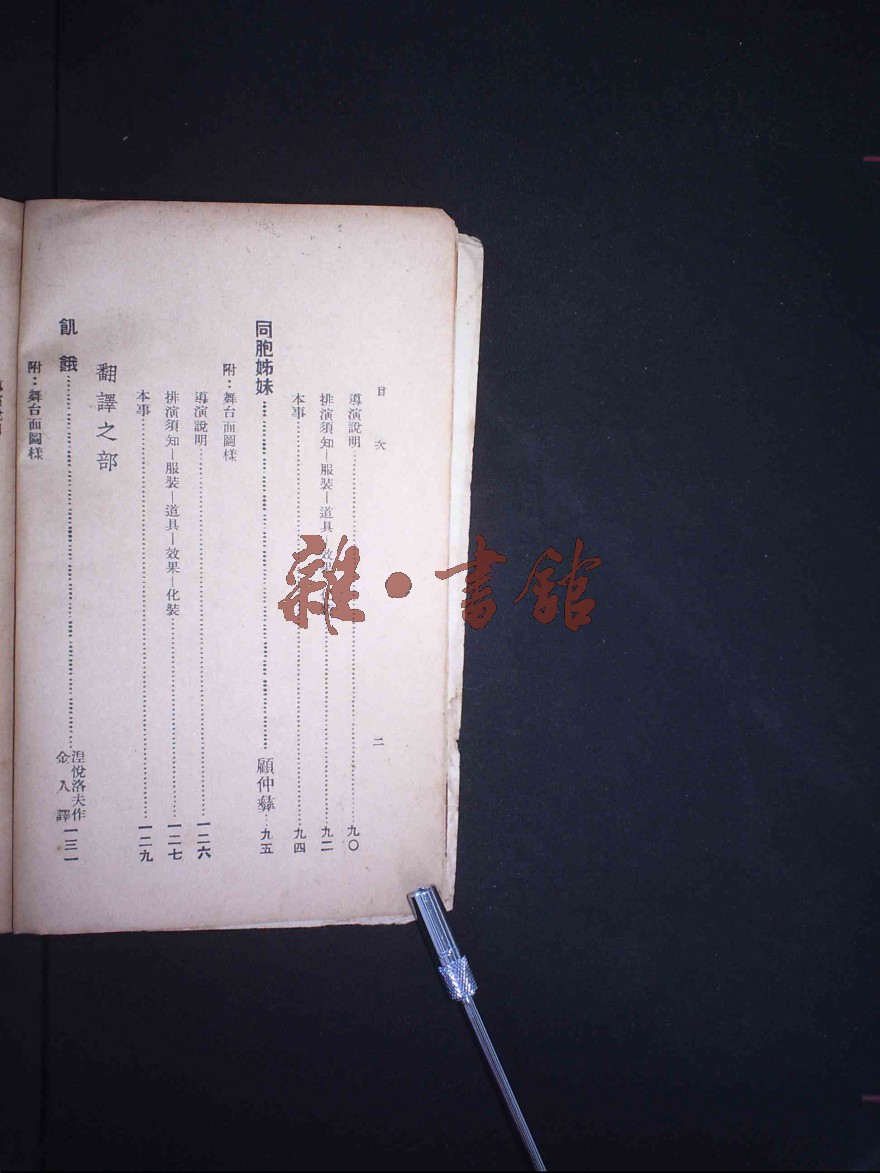 目次
二
導演說明……九〇
排演須知—服裝—道具—效果……九二
本事……九四
同胞姊妹……顧仲彝……九五
附：舞台面圖樣
導演說明……一二六
排演須知—服裝—道具—效果—化裝……一二七
本事……一二九
翻譯之部
飢餓……涅悅洛夫作
金人譯
一三一
附：舞台面圖樣
雜·書舘